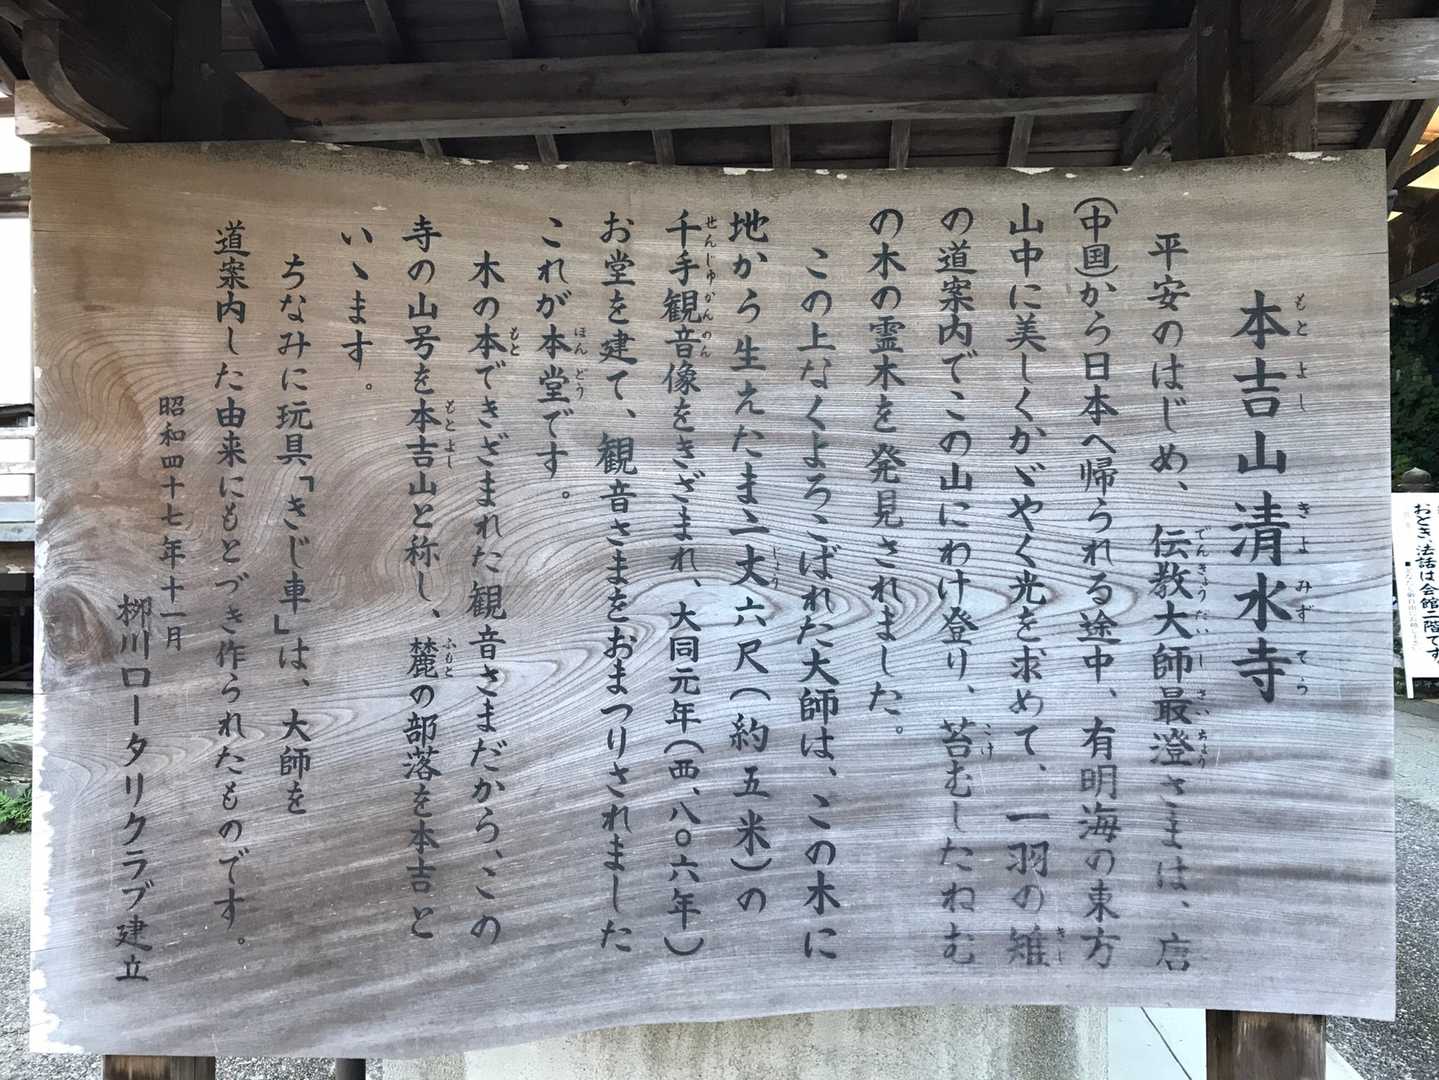 本吉山清水寺
もとよし きよみずてら
平安のはじめ、伝教大師最澄さまは、唐
でんきょうだいし さいちょう
(中国)から日本へ帰られる途中、有明海の東方
山中に美しくかゞやく光を求めて、一羽の雉
きじ
の道案内でこの山にわけ登り、苔むしたねむ
こけ
の木の霊木を発見されました。
この上なくよろこばれた大師は、この木に
地から生えたまゝ一丈六尺(約五米)の
じょう
千手観音像をきざまれ、大同元年(西、八〇六年)
せんじゅかんのん
お堂を建て、観音さまをおまつりされました
これが本堂です。
ほんどう
木の本できざまれた観音さまだから、この
もと
寺の山号を本吉山と称し、麓の部落を本吉と
もとよし ふもと
いゝます。
ちなみに玩具「きじ車」は、大師を
道案内した由来にもとづき作られたものです。
昭和四十七年十一月
柳川ロータリクラブ建立
おとき、法話は会館二階です